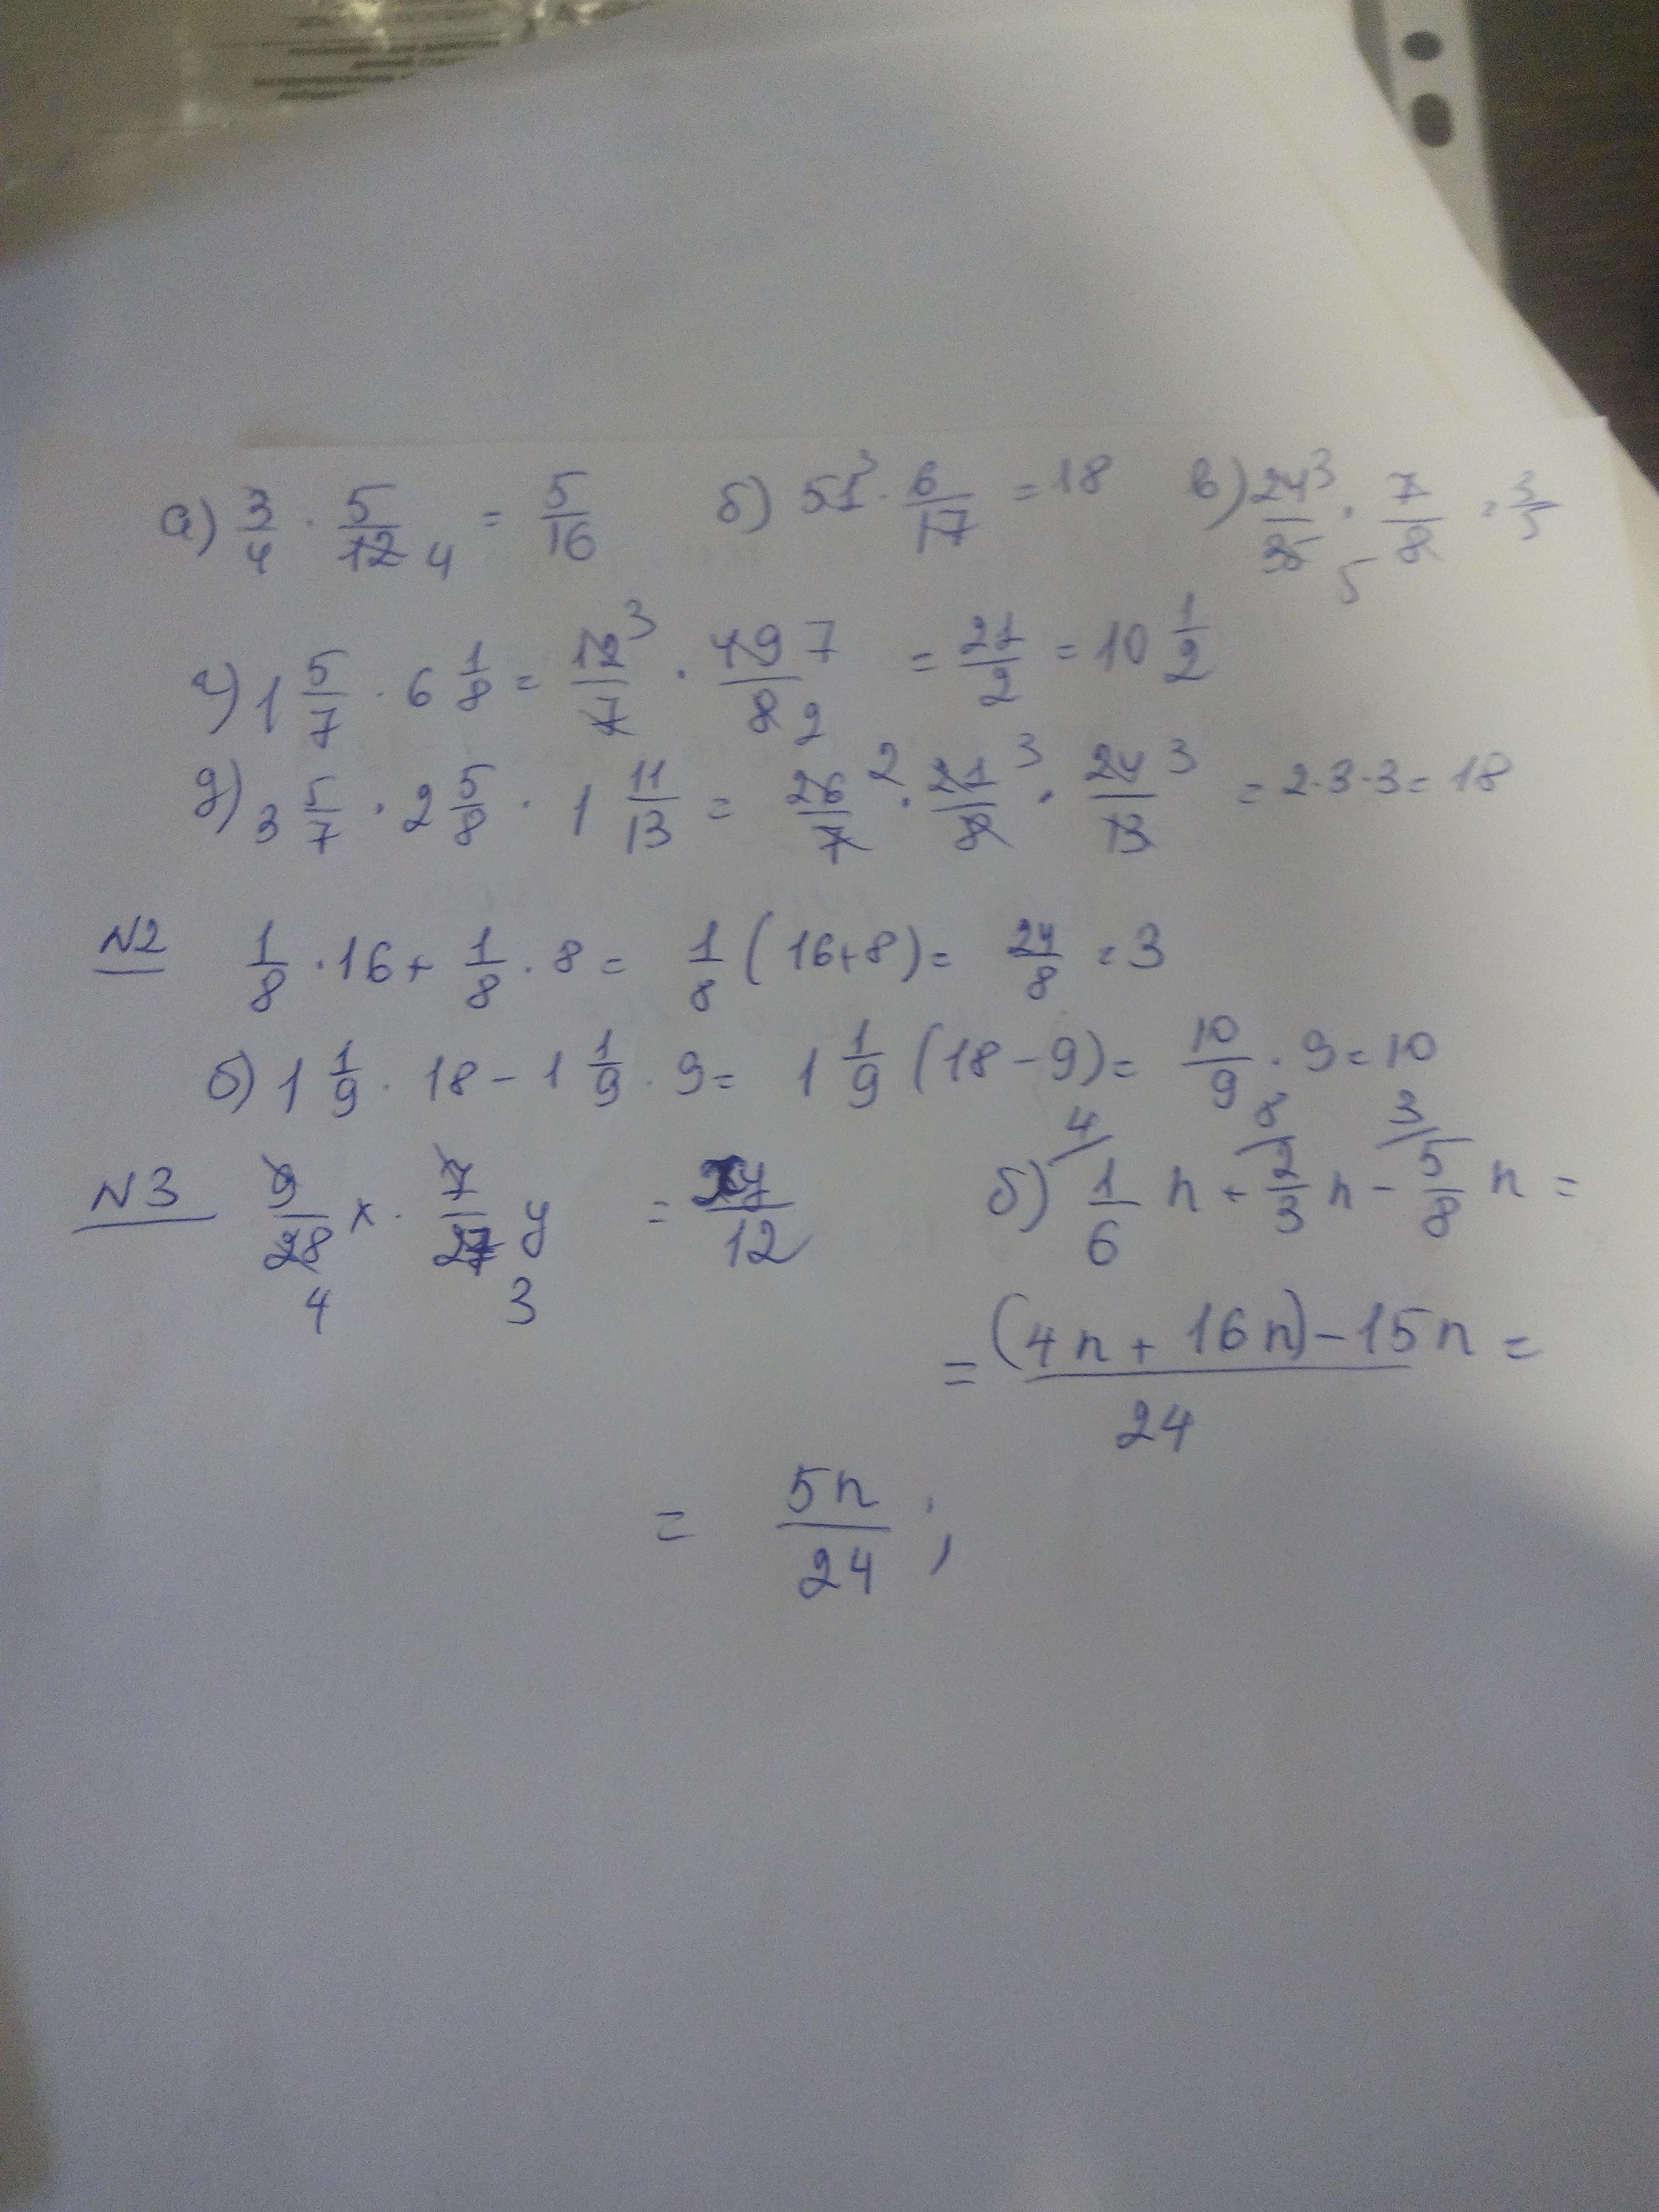 а) 3/4 · 5/12 4 = 5/16 б) 51 3 · 6/17 = 18 в) 24 3/35 5 · 7/8 = 3/5
г) 1 5/7 · 6 1/8 = 12 3/7 · 49 7/8 2 = 21/2 = 10 1/2
д) 3 5/7 · 2 5/8 · 1 11/13 = 26 2/7 · 21 3/8 · 24 3/13 = 2·3·3 = 18
N2 1/8 · 16 + 1/8 · 8 = 1/8 (16+8) = 24/8 = 3
б) 1 1/9 · 18 - 1 1/9 · 9 = 1 1/9 (18-9) = 10/9 · 9 = 10
N3 9/28 4 x · 7/27 3 y = xy/12 б) 4/ 1/6 n + 8/ 2/3 n - 3/ 5/8 n =
= (4n + 16n) - 15n/24 =
= 5n/24 ;